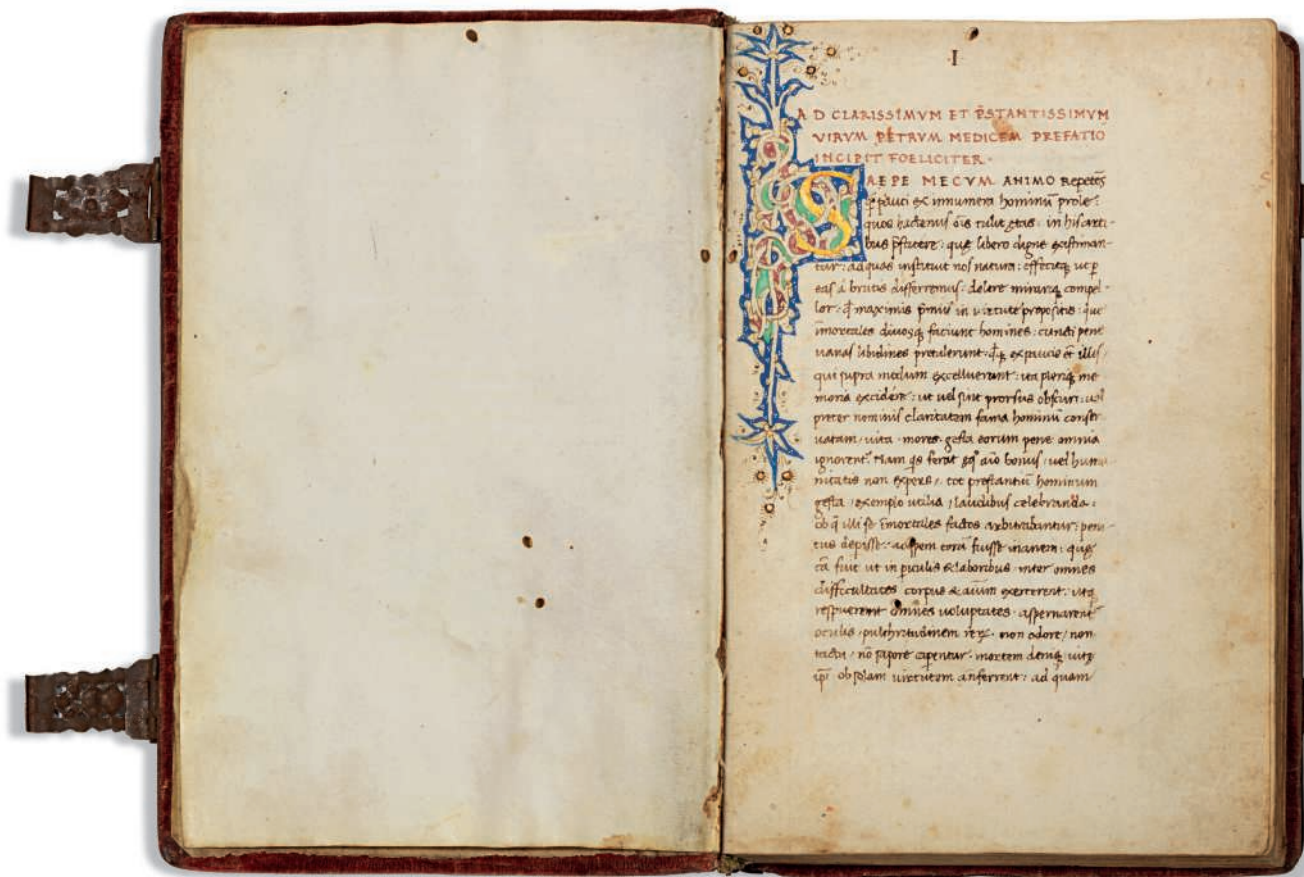 I
AD CLARISSIMVM ET P̄STANTISSIMVM
VIRVM PETRVM MEDICEM PREFATIO
INCIPIT FOELICITER·
SAEPE MECVM ANIMO Repetēs
q̄ pauci ex innumera hominū prole:
quos hactenus ōis tulit ętas: in his arti-
bus p̄stitere: quę libero digne existiman-
tur: ad quas instituit nos natura: effecitq; ut ꝑ
eas à brutis differremus: dolere mirariq; compel-
lor: maximis p̄miis in uirtute propositis: que
īmortales diuosq; faciunt homines: cuncti pene
uanas libidines pretulerunt: ex paucis illis,
qui supra modum excelluerunt: ita pleriq; me
moria excidere: ut uel sint prorsus obscuri: uel
preter nominis claritatem fama hominū conser
uatam: uita· mores· gesta eorum pene omnia
ignorent. Nam ferat aīo bonus, uel huma
nitatis non expers, tot prestantiū hominum
gesta, exemplo utilia, laudibus celebranda:
ob q̄ illi se īmortales factos arbitrabantur: peni
tus depisse: ac spem fuisse inanem: quę
cā fuit ut in piculis & laboribus inter omnes
difficultates corpus & aīum exercerent: utq;
respuerent omnes uoluptates· aspernarent
oculis· pulchritudinem· non odore, non
tactu, nō sapore caperentur· mortem deniq; uitę
ob solam uirtutem anferrent: ad quam